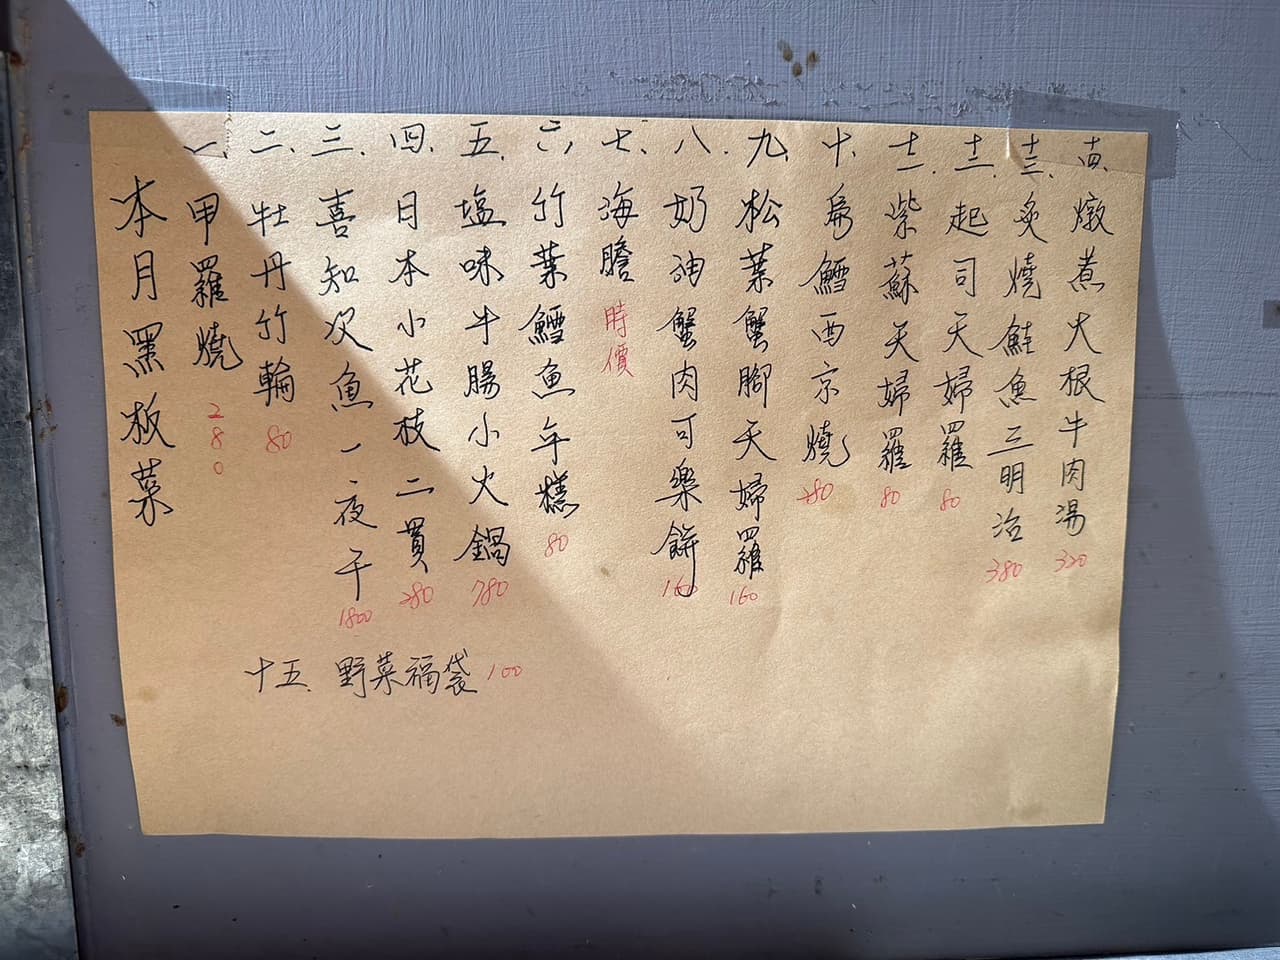 本月黑板菜
一、甲羅燒 280
二、牡丹竹輪 80
三、喜知次魚一夜干 1800
四、日本小花枝二貫 280
五、塩味牛腸小火鍋 780
六、竹葉鱈魚年糕 80
七、海膽 時價
八、奶油蟹肉可樂餅 160
九、松葉蟹腳天婦羅 160
十、扁鱈西京燒 280
十一、紫蘇天婦羅 80
十二、起司天婦羅 80
十三、炙燒鮭魚三明治 380
十四、燉煮大根牛肉湯 320
十五、野菜福袋 100